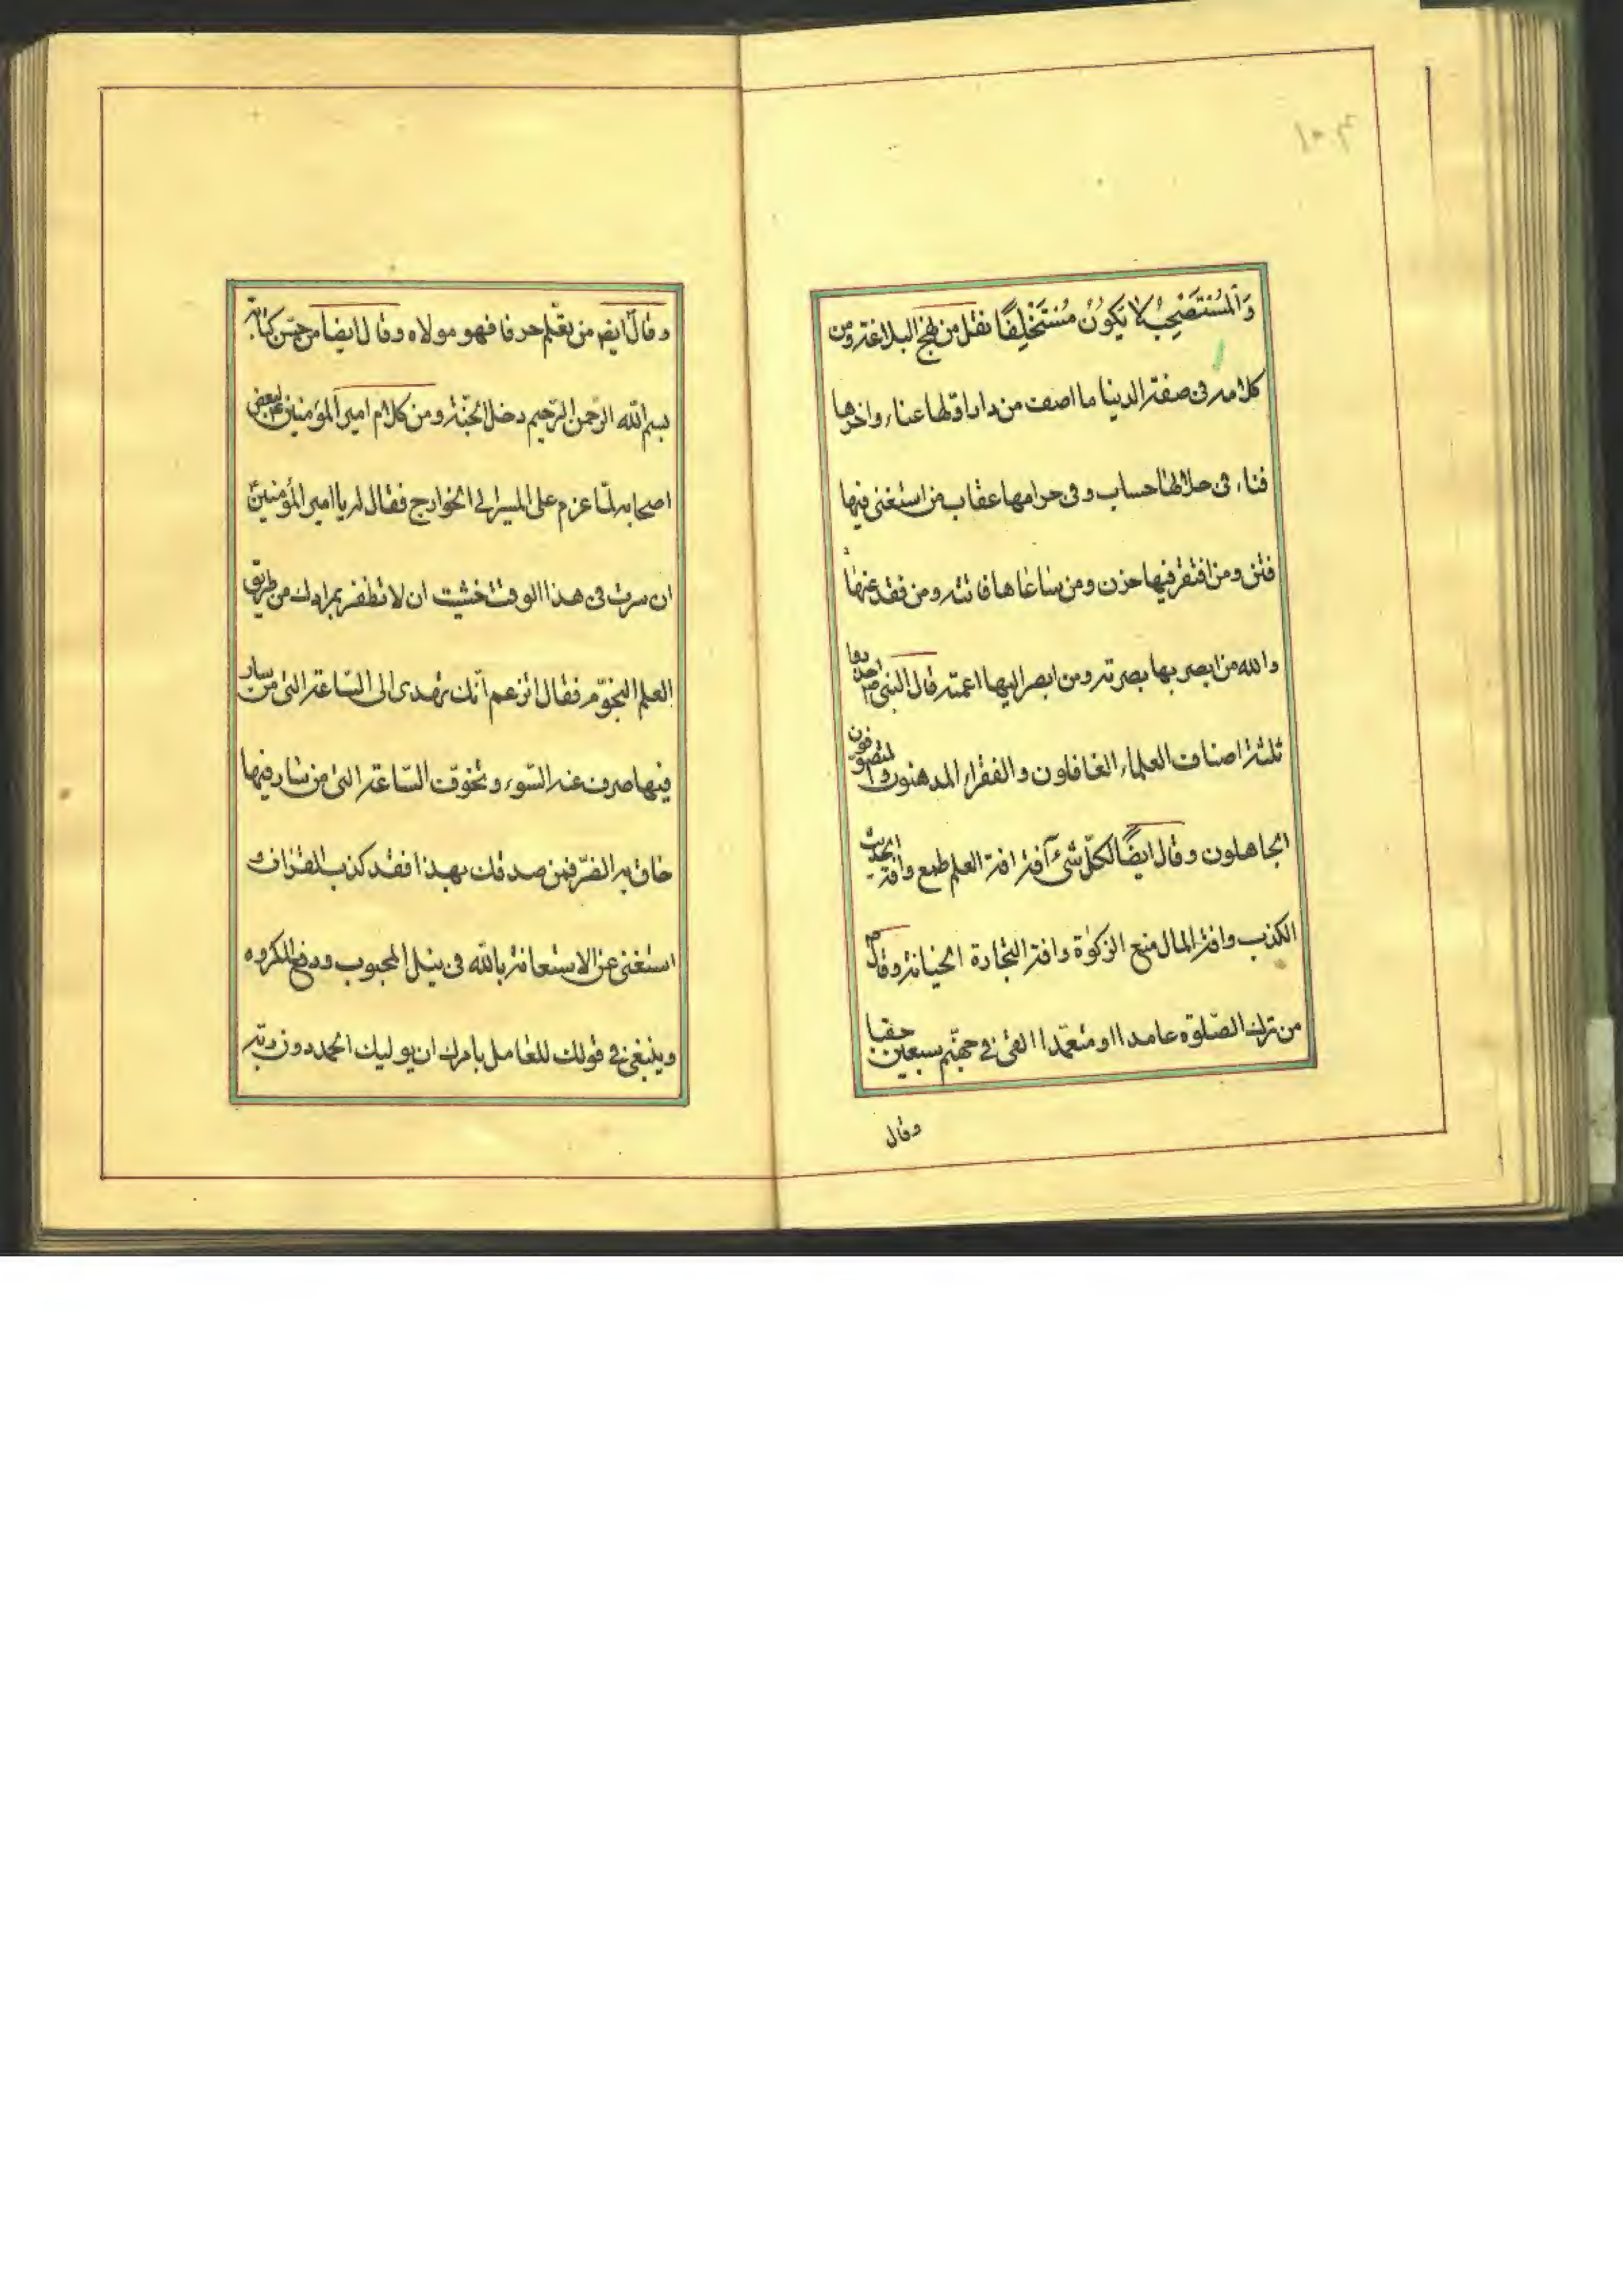 ١٠٤
وَالْمُسْتَصْحِبُ لَا يَكُونُ مُسْتَخْلِفًا نقل من نهج البلاغة ومن
كلامه فى صفة الدنيا ما اصف من دار اوّلها عناء واخرها
فناء فى حلالها حساب وفى حرامها عقاب من استغنى فيها
فتن ومن افتقر فيها حزن ومن ساعاها فاتته ومن فقد عنها
والله من ابصر بها بصرته ومن ابصر اليها اعمته قال النبى ص احذروا
ثلثة اصناف العلماء الغافلون والفقراء المدهنون والمتصوفون
الجاهلون وقال ايضًا لكلّ شئ آفة افة العلم طمع وافة الحديث
الكذب وافة المال منع الزكوٰة وافة التجارة الخيانة وقال ص
من ترك الصّلوة عامدا او متعمّدا القى فى جهنّم سبعين حقبا
وقال
وقال ايض من تعلّم حرفا فهو مولاه وقال ايضا من حسّن كتابة
بسم الله الرّحمن الرّحيم دخل الجنّة ومن كلام امير المؤمنين ع لبعض
اصحابه لمّا عزم على المسير الى الخوارج فقال له يا امير المؤمنين
ان سرت فى هذا الوقت خشيت ان لا تظفر بمرادك من طريق
العلم النجوّم فقال اتزعم انّك تهدى الى السّاعة التى من سار
فيها صرف عنه السّوء وتخوّف السّاعة التى من سار فيها
حاق به الضّر فمن صدقك بهذا فقد كذب القران و
استغنى عن الاستعانة بالله فى نيل المحبوب ودفع المكروه
وينبغى فى قولك للعامل بامرك ان يوليك الحمد دون ربّه